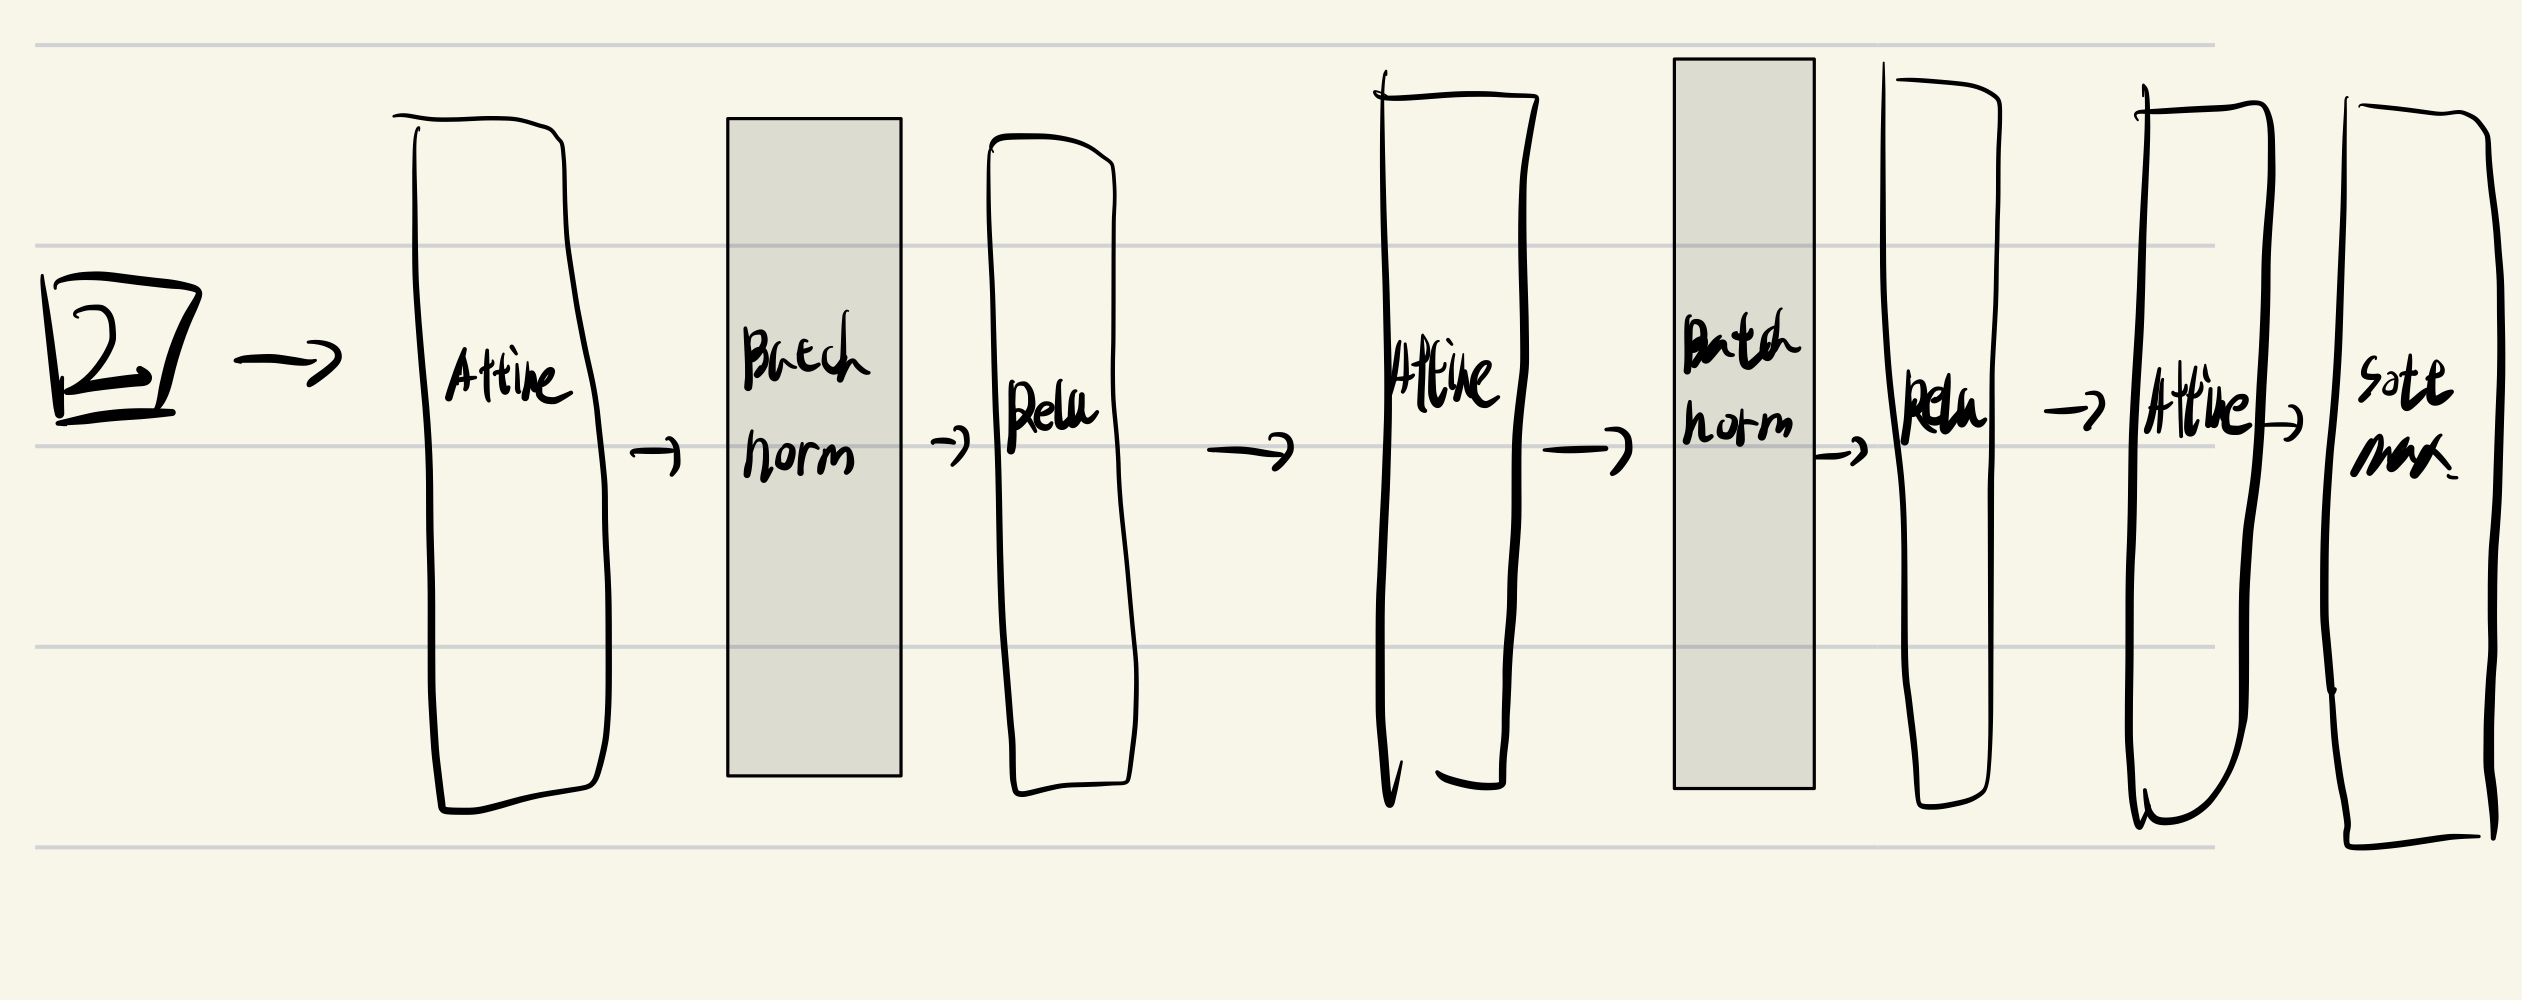 2
Affine
Batch
norm
Relu
Affine
Batch
norm
Relu
Affine
Soft
max